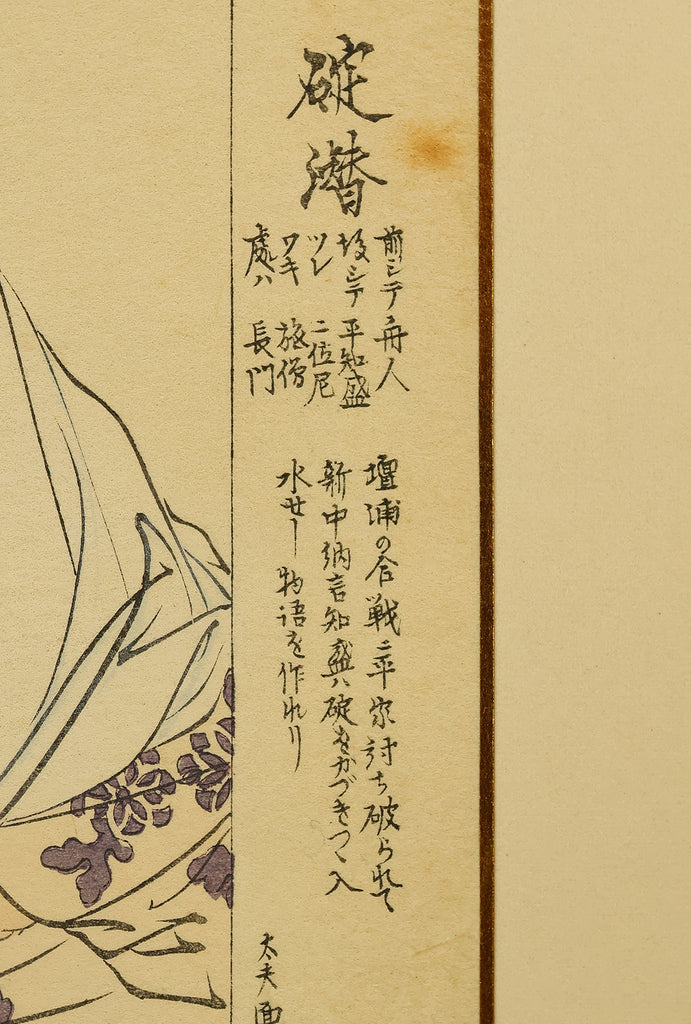 碇潜
前シテ 舟人
後シテ 平知盛
ツレ 二位尼
ワキ 旅僧
處ハ 長門
壇浦の合戦ニ平家討ち破られて
新中納言知盛ハ碇をかづきつゝ入
水せし物語を作れり
太夫画